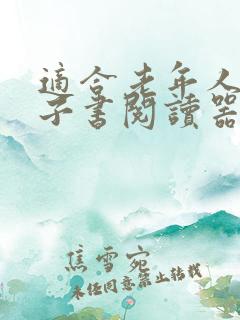 適合老年人
子書閱讀器
焦雪宛
未经同意禁止转载